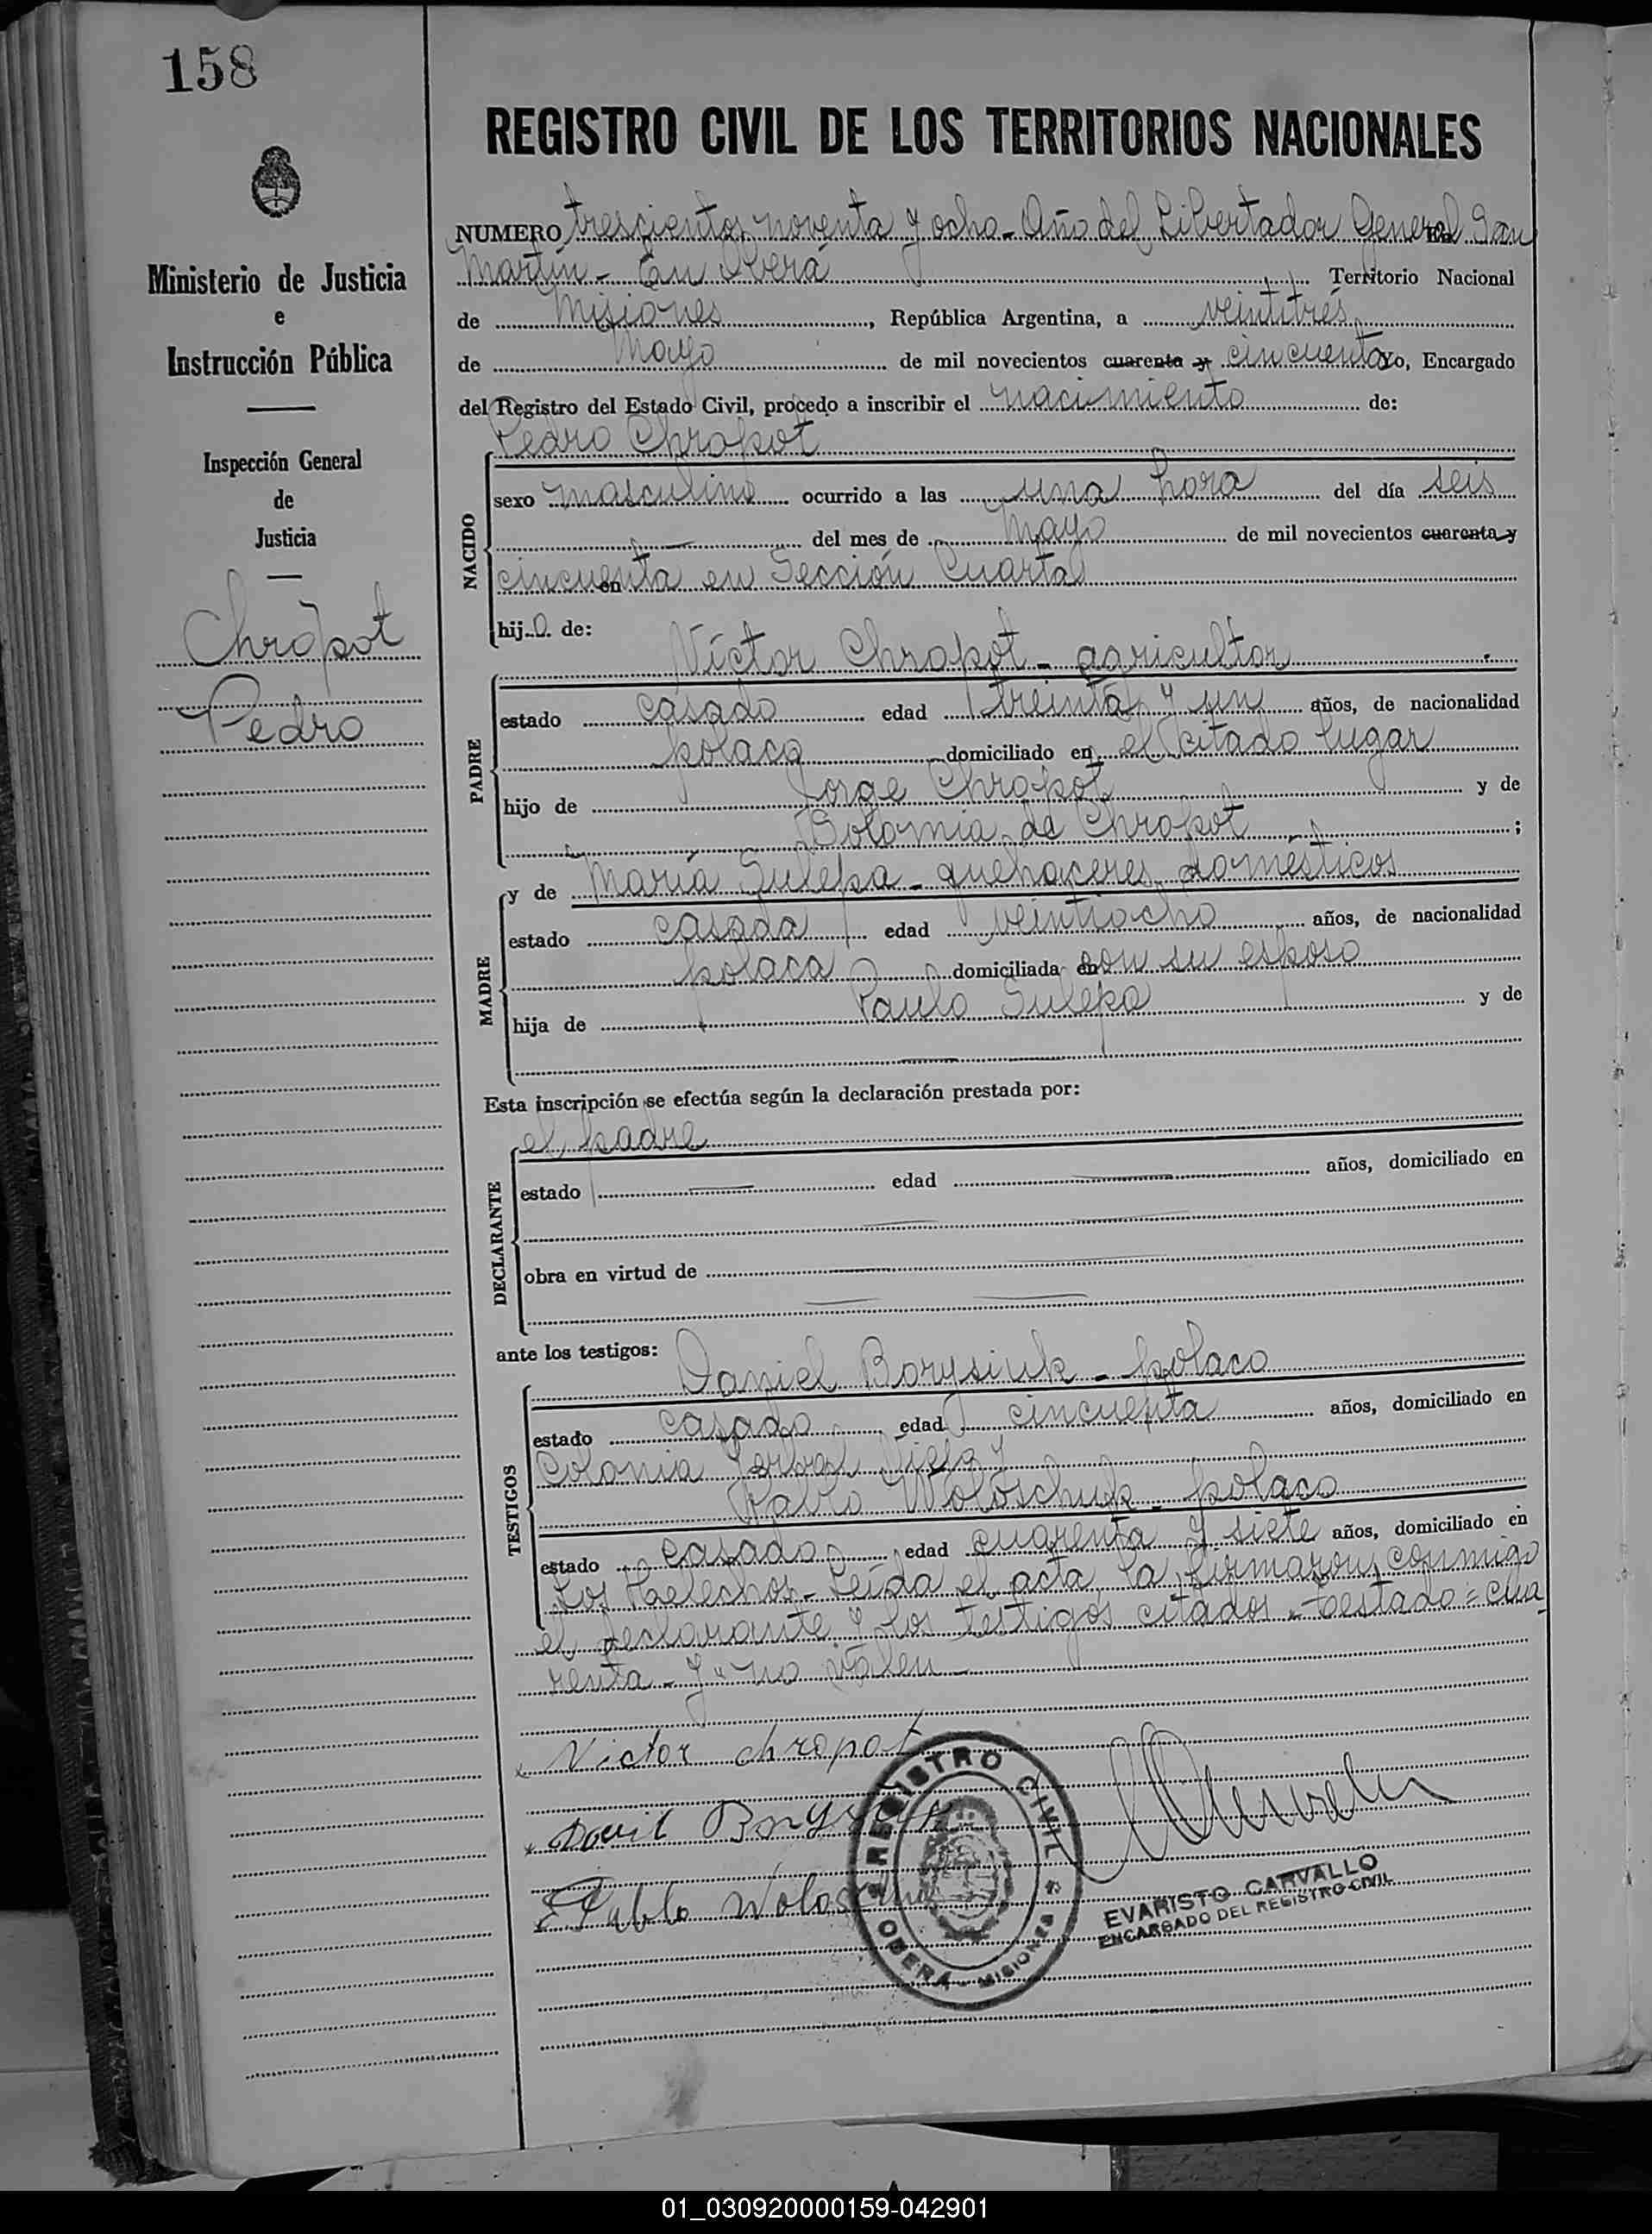 158
REGISTRO CIVIL DE LOS TERRITORIOS NACIONALES
Ministerio de Justicia
e
Instrucción Pública
Inspección General
de
Justicia
Chropot
Pedro
NUMERO trescientos noventa y ocho - Año del Libertador General San
Martín - En Oberá Territorio Nacional
de Misiones, República Argentina, a veintitrés
de Mayo de mil novecientos cuarenta y cincuenta Yo, Encargado
del Registro del Estado Civil, procedo a inscribir el nacimiento de:
Pedro Chropot
NACIDO
sexo masculino ocurrido a las una hora del día seis
del mes de Mayo de mil novecientos cuarenta y
cincuenta en en Sección Cuarta
hijo de:
PADRE
Víctor Chropot - agricultor
estado casado edad treinta y un años, de nacionalidad
polaca domiciliado en el citado lugar
hijo de Jorge Chropot y de
Solomia de Chropot ;
MADRE
y de María Sulepa - quehaceres domésticos
estado casada edad veintiocho años, de nacionalidad
polaca domiciliada en con su esposo
hija de Paulo Sulepa y de
Esta inscripción se efectúa según la declaración prestada por:
DECLARANTE
el padre
estado edad años, domiciliado en
obra en virtud de
ante los testigos:
TESTIGOS
Daniel Borysiuk - polaco
estado casado edad cincuenta años, domiciliado en
Colonia Yerbal Viejo y
Pablo Woloschuk - polaco
estado casado edad cuarenta y siete años, domiciliado en
Los Helechos - Leída el acta, la firmaron conmigo
el declarante y los testigos citados - Testado = cua
renta - y" no valen -
Victor chropot
Pablo
REGISTRO CIVIL
OBERÁ - MISIONES
EVARISTO CARVALLO
ENCARGADO DEL REGISTRO CIVIL
01_030920000159-042901